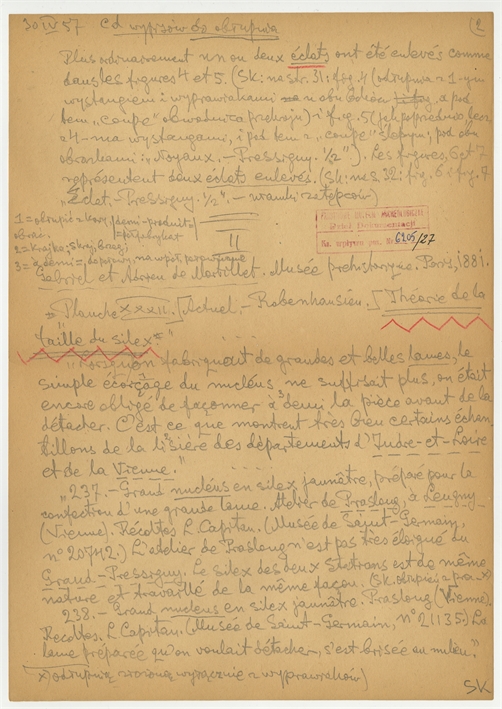 30 IV 57 Cd wypisów do obłupnia (2
Plus ordinairement un ou deux éclats ont été enlevés comme
dans les figures 4 et 5. (Sk: na str. 31: fig. 4 (odłupnia z 1-ym
i wyprawiakami na obu bokach a pod
tem „coupe" obwodnica przekroju) i fig. 5 (jak poprzednio, lecz
z 4-ma wystangami, i pod tem z „coupe" ślepym; pod obu
obrazkami: „Noyaux. – Pressigny. ½"). Les figures, 6 et 7
représentent deux éclats enlevés. (Sk: na s 32: fig. 6 i fig. 7
„Éclat. – Pressigny. ½")
1 = (demi-produkt)
obrai. = półfabrykat
2 = krajka, skraj, brzeg;
3 = à demi = do połowy, na wpół,
II
Dział Dokumentacji
6205/27
Gabriel et Adrien de Mortillet. Musée préhistorique. Paris, 1881.
„Planche XXXII. [Actuel. – Robenhausien. [Théorie de la
taille du silex"
„Lorsqu'on fabriquait de grandes et belles lames, le
simple écorçage du nucléus ne suffisait plus, on était
encore obligé de façonner à demi la pièce avant de la
détacher. C'est ce que montrent très bien certains échan-
tillons de la lisière des départements d'Indre-et-Loire
et de la Vienne."
„237. – Grand nucléus en silex jaunâtre, préparé pour la
confection d'une grande lame. Atelier de Prasloug, à Leugny
(Vienne). Récoltes L. Capitan. (Musée de Saint-Germain,
n° 20742.) L'atelier de Prasloug n'est pas très éloigné du
Grand-Pressigny. Le silex des deux stations est de même
nature et travaillé de la même façon. (Sk. obłupień z pra x)
238. – Grand nucleus en silex jaunâtre. Prasloug (Vienne)
Récoltes. L. Capitan. (Musée de Saint-Germain, n° 21135.) La
lame préparée qu'on voulait détacher, s'est brisée au milieu."
x) odłupnią wyłącznie z wyprawiakow)
SK